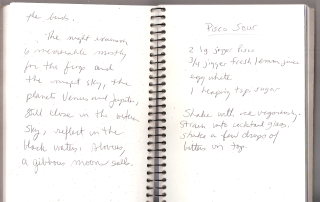 the birds.
The night evening
is memorable mostly
for the frogs and
the night sky, the
planets Venus and Jupiter,
still close in the western
sky, reflect in the
black water. Above,
a gibbous moon
Pisco Sour
2 jigger Pisco
3/4 jigger fresh lemon juice
egg white
1 heaping tsp. sugar
Shake with ice vigorously.
Strain into cocktail glass.
Shake a few drops of
bitters on top